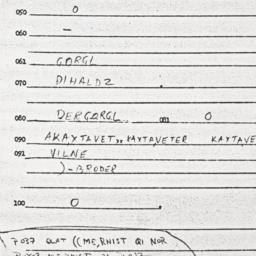 050 0
060 –
061 GARGL
070 DIHALDZ .
080 DERGARGL 081 0
090 AKAXTAVET,, KAXTAVETER KAXTAVE
091 VILNE
)-BRODER
100 0 .
P037 QUAT ((ME,RNIST QI NOR